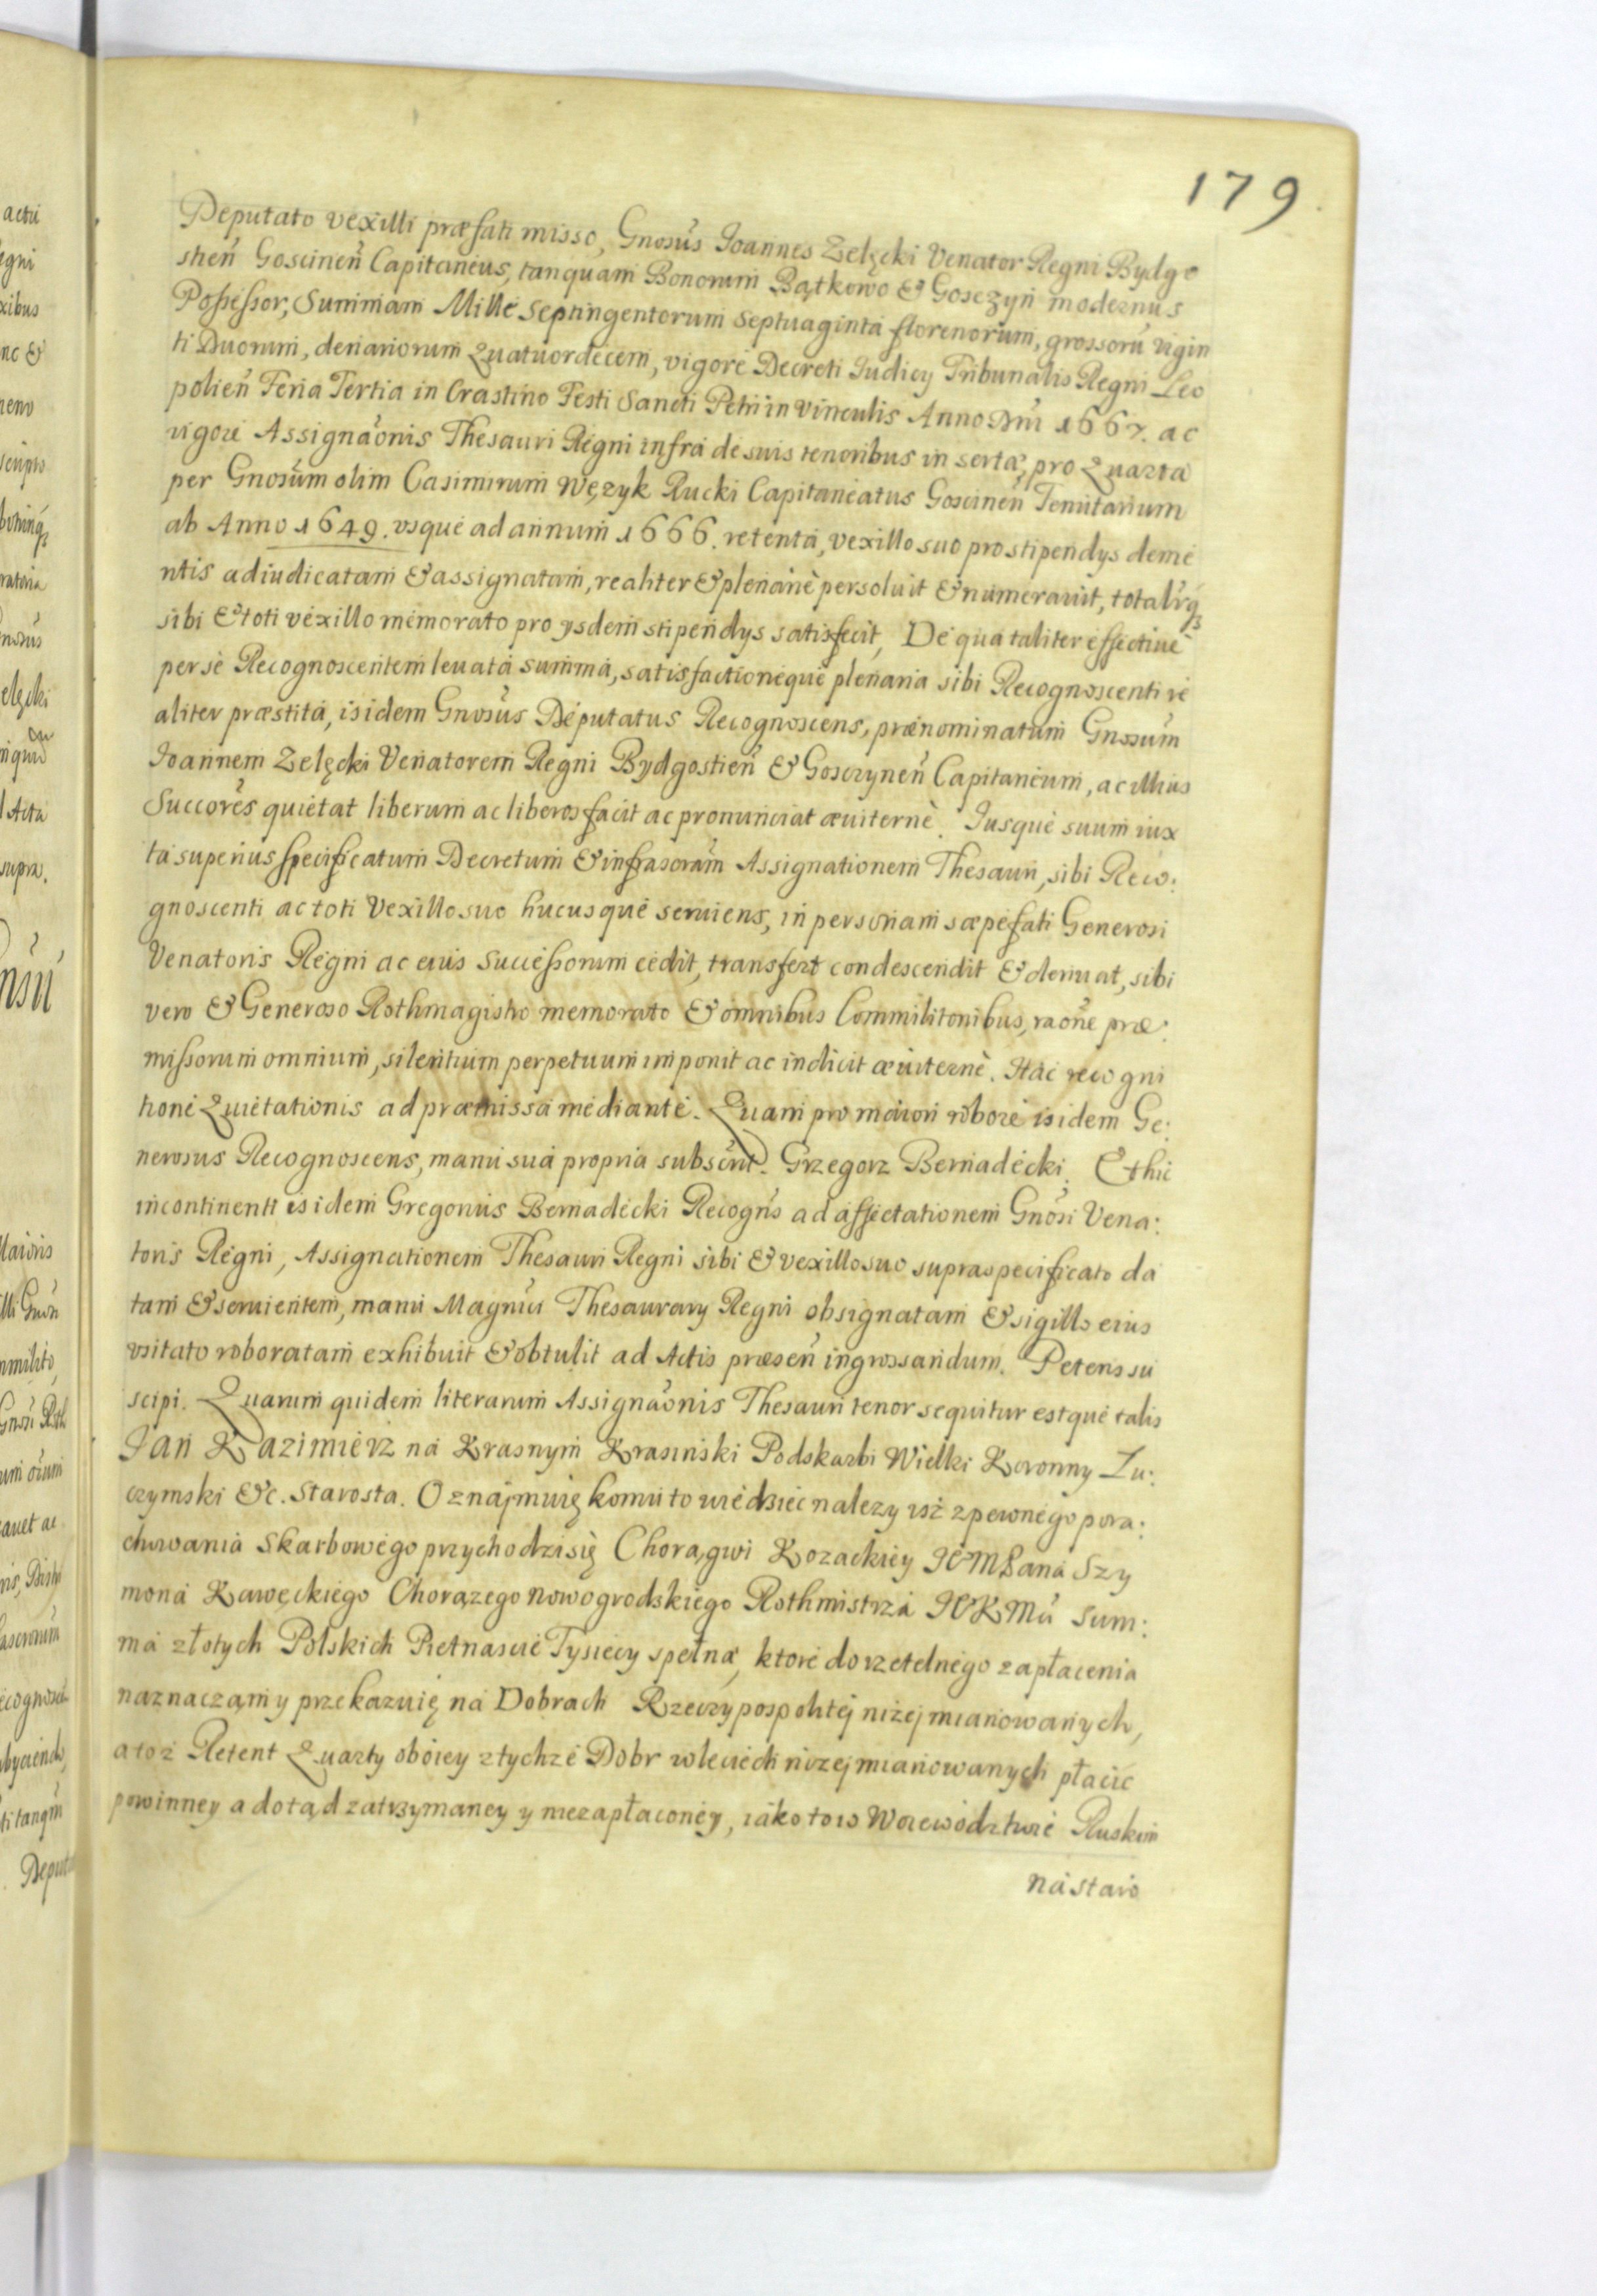 179
Deputato vexilli præfati misso, Gnosus Joannes Zelęcki Venator Regni Bydgo
stien Goscinen Capitaneus, tanquam Bonorum Bątkowo & Gosczyn modernus
Possessor, Summam Mille septingentorum septuaginta florenorum, grossorū vigin
ti Duorum, denariorum Quatuordecem, vigore Decreti Iudicy Tribunalis Regni Leo
polien Feria Tertia in Crastino Festi Sancti Petri in vinculis Anno Dni 1667. ac
vigore Assignaōnis Thesauri Regni infra de suis tenoribus in sertæ, pro Quarta
per Gnosum olim Casimirum Wężyk Rucki Capitaneatus Goscinen Tenutarium
ab Anno 1649. vsque ad annum 1666. retenta, vexillo suo pro stipendys deme
ritis adiudicatam & assignatam, realiter & plenariè persoluit & numerauit, totaliq3
sibi & toti vexillo memorato pro ysdem stipendys satisfecit, De qua taliter effectiuè
per se Recognoscentem leuata summa, satisfactioneque plenaria sibi Recognoscenti re
aliter præstita, isidem Gnosus Deputatus Recognoscens, prænominatum Gnosum
Joannem Zelęcki Venatorem Regni Bydgostien & Gosczynen Capitaneum, ac illius
Succores quietat liberum ac liberos facit ac pronunciat æuiternè. Iusque suum iux
ta superius specificatum Decretum & infrascram Assignationem Thesauri, sibi Reco:
gnoscenti ac toti Vexillo suo hucusque seruiens, in personam sæpefati Generosi
Venatoris Regni ac eius Successorum cedit, transfert condescendit & deriuat, sibi
vero & Generoso Rothmagistro memorato & omnibus Commilitonibus, raōne præ:
missorum omnium, silentium perpetuum imponit ac indicit æuiternè. Hac recogni
tione Quietationis ad præmissa mediante. Quam pro maiori robore isidem Ge:
nerosus Recognoscens, manu sua propria subscrit. Grzegorz Bernadecki. Et hic
incontinenti isidem Gregorius Bernadecki Recogns ad affectationem Gnosi Vena:
toris Regni, Assignationem Thesauri Regni sibi & vexillo suo supraspecificato da
tam & seruientem, manu Magnici Thesaurary Regni obsignatam & sigillo eius
vsitato roboratam exhibuit & obtulit ad Actis præsen ingrossandum. Petens su
scipi. Quarum quidem literarum Assignaōnis Thesauri tenor sequitur estque talis
Jan Kazimierz na Krasnym Krasinski Podskarbi Wielki Koronny Lu:
czymski &c. Starosta. Oznajmuię komu to wiedziec nalezy isz z pewnego pora:
chowania Skarbowego przychodzi się Chorągwi Kozackiey JEMPana Szy
mona Kawęckiego Chorązego Nowogrodskiego Rothmistrza JKMci Sum:
ma złotych Polskich Pietnascie Tysiecy spełna, ktore do rzetelnego zapłacenia
naznaczam y przekazuię na Dobrach Rzeczypospolitej niżej mianowanych,
a to z Retent Quarty oboiey z tychze Dobr w leciech nizej mianowanych płacic
powinney a dotąd zatrzymaney y niezapłaconey, iako to w Woiewodztwie Ruskim
na staro